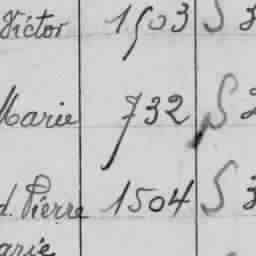 Victor 1503 S 3
Marie 732 S 2
d. Pierre 1504 S 3
arie